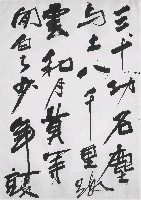 三十功名塵
与土八千里路
雲和月莫等
閒白了少年頭